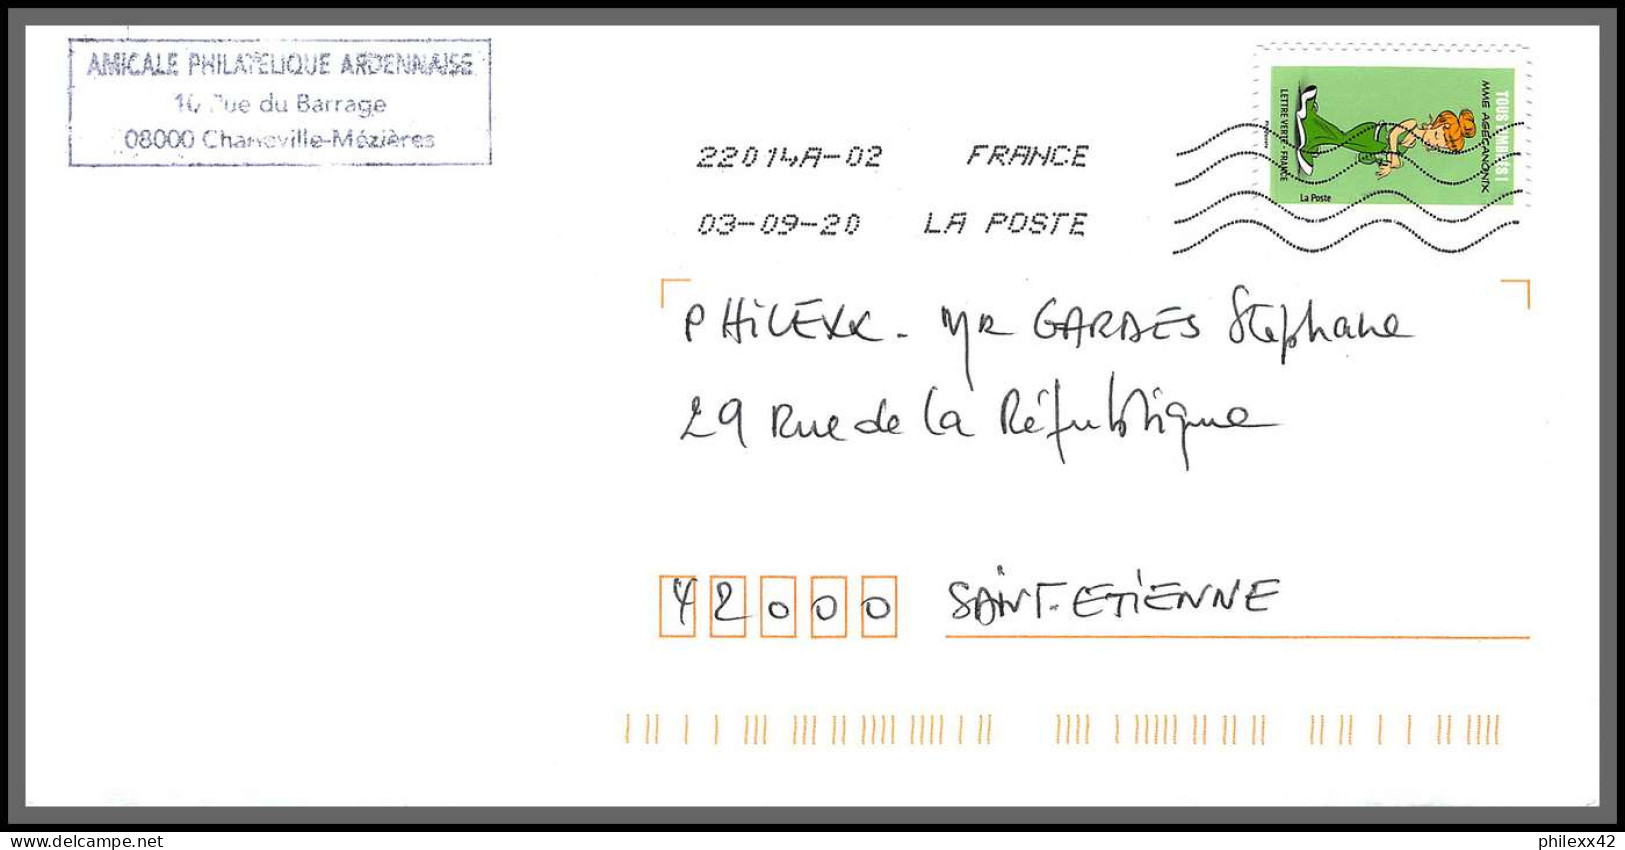 AMICALE PHILATELIQUE ARDENNAISE
Rue du Barrage
08000 Charleville-Mézières
TOUS
MME AGECANONIX
LETTRE VERTE - FRANCE
La Poste
22014A-02 FRANCE
03-09-20 LA POSTE
PHILEXX - MR GARDES Stéphane
29 Rue de la République
42000 SAINT-ETIENNE
philexx42